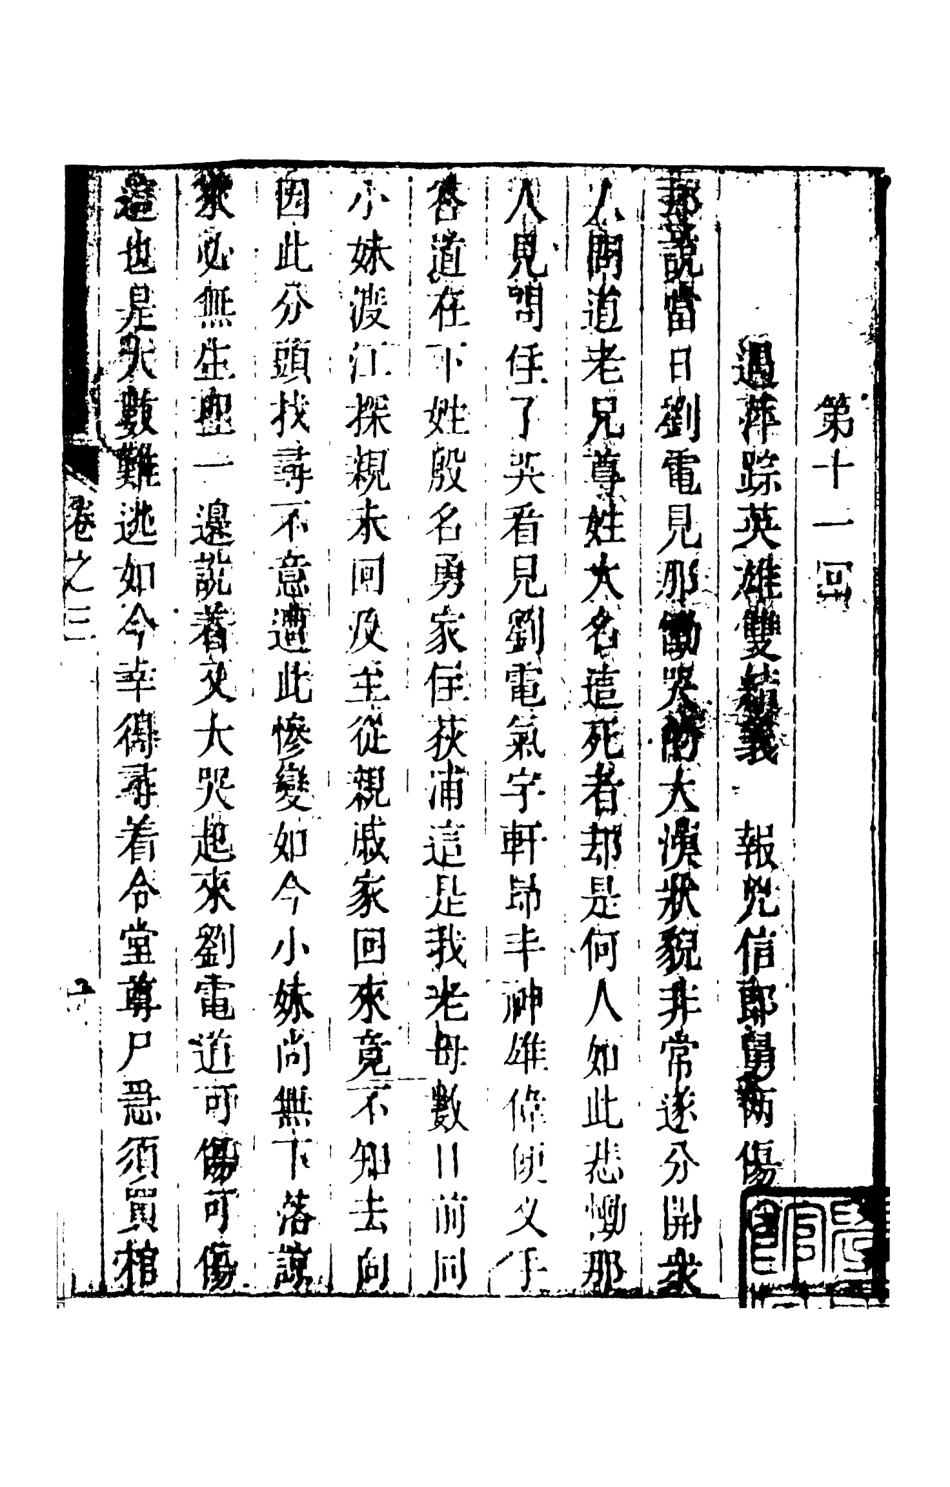 第十一回
遇萍踪英雄雙結義 報兇信郎舅兩傷
却說當日劉電見那慟哭的大漢狀貌非常遂分開衆
人問道老兄尊姓大名這死者却是何人如此悲慟那
人見問住了哭看見劉電氣宇軒昂丰神雄偉便叉手
答道在下姓殷名勇家住荻浦這是我老母數日前同
小妹渡江探親未回及至從親戚家回來竟不知去向
因此分頭找尋不意遭此慘變如今小妹尚無下落諒
來必無生理一邊說着又大哭起來劉電道可傷可傷
這也是大數難逃如今幸得尋着令堂尊尸急須買棺
卷之三